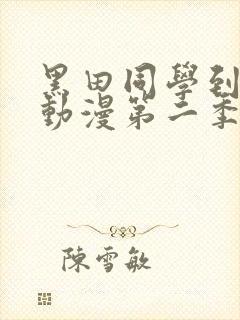 黑田同學到
動漫第二季
陳雪敏